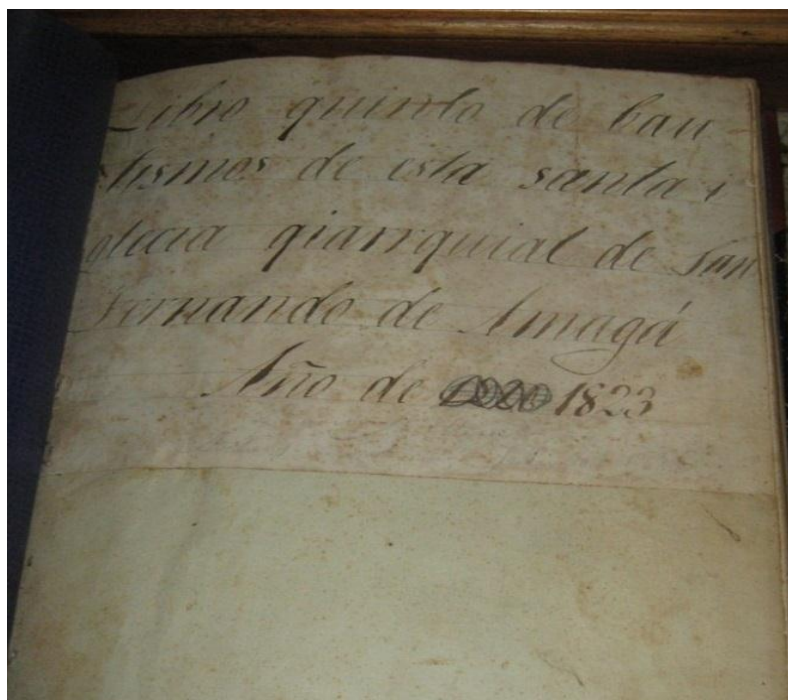 Libro quinto de bau-
tismos de esta santa i
glecia parrquial de San
Fernando de Amagá
Año de 1823